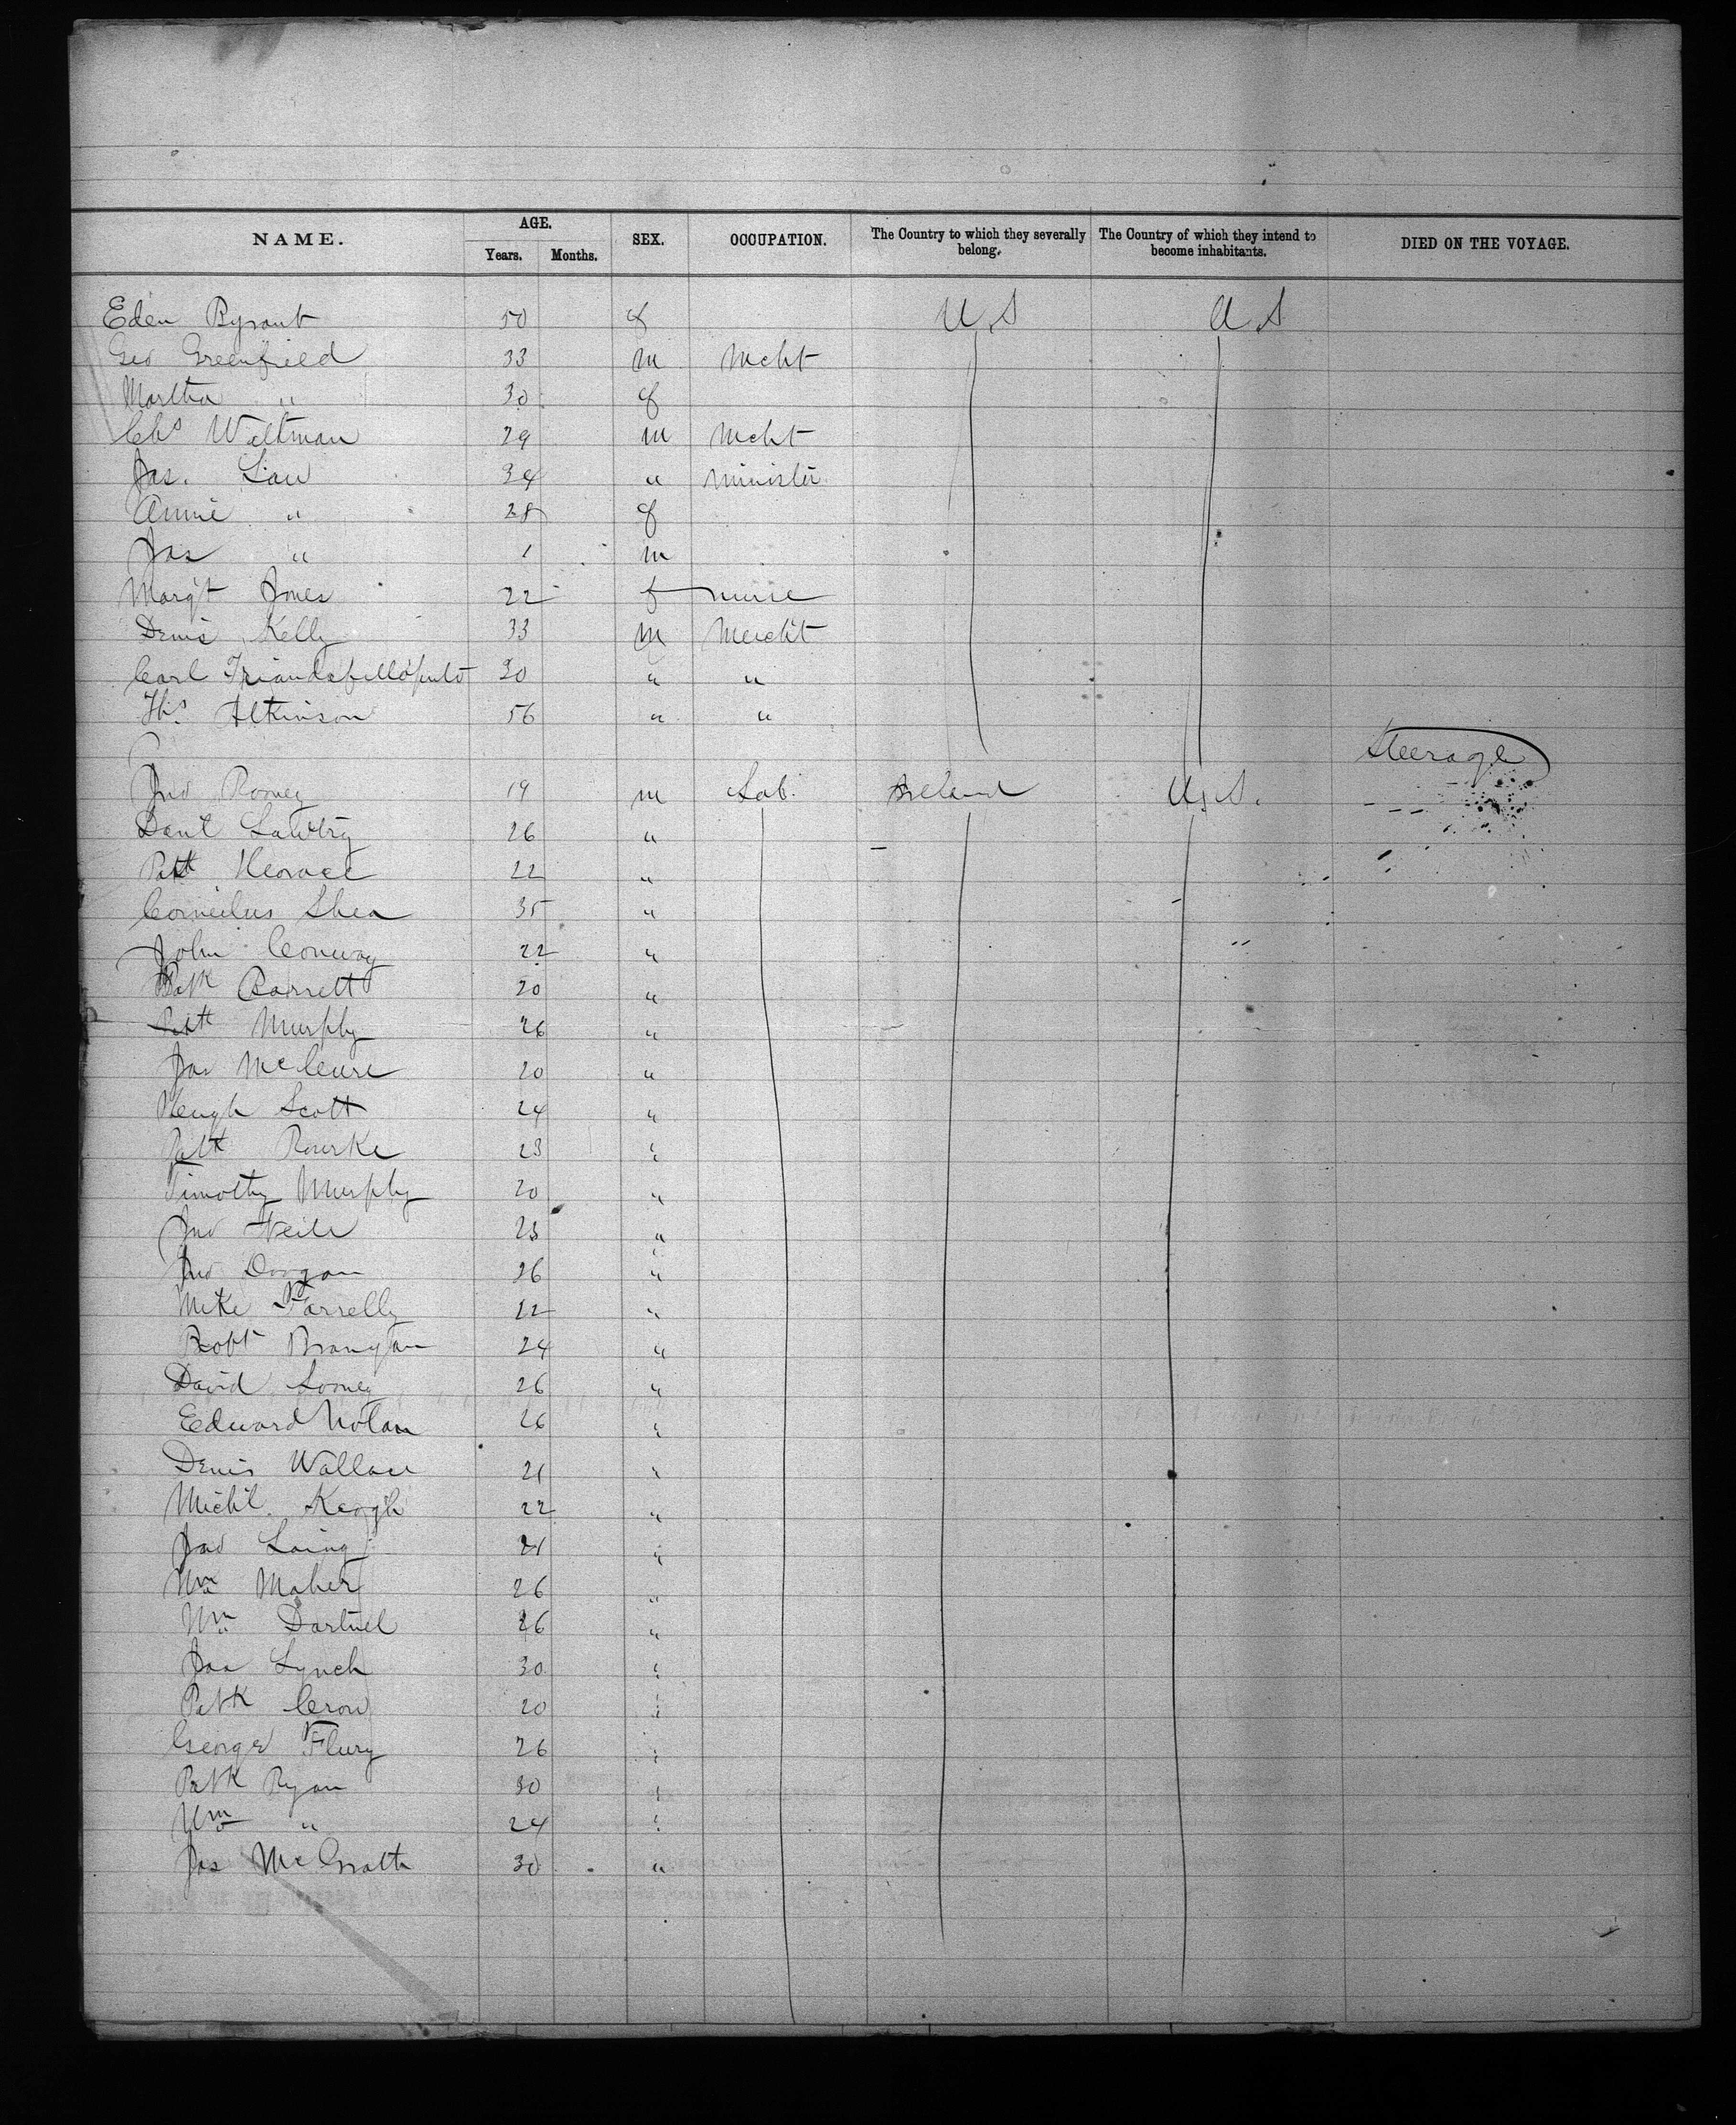 NAME. AGE. SEX. OCCUPATION. The Country to which they severally belong. The Country of which they intend to become inhabitants. DIED ON THE VOYAGE.
Years. Months.
Eden Bysant 50 f U.S U.S
Geo Greenfield 33 m Mcht
Martha " 30 f
Chs Waltman 29 m Mcht
Jas. Law 34 " Minister
Annie " 28 f
Jas " 1 m
Margt Jones 22 f nurse
Denis Kelly 33 m Mercht
Carl Triandafillopulo 30 " "
Ths Atkinson 56 " "
Steerage
Jno Roney 19 m Lab. Ireland U.S.
Danl 26 "
Patk 22 "
Cornelius Shea 35 "
John Conway 22 "
Patk Barrett 20 "
Patk Murphy 26 "
Jas McClure 20 "
Heugh Scott 24 "
Patk Rourke 23 "
Timothy Murphy 20 "
Jno Neile 23 "
Jno Doogan 26 "
Mike Farrelly 22 "
Robt Branyan 24 "
David Looney 26 "
Edward Nolan 26 "
Denis Wallace 21 "
Michl. Keogh 22 "
Jas Laing 21 "
Wm Maher 26 "
Wm Dartnel 26 "
Jas Lynch 30 "
Patk Crow 20 "
George Flury 26 "
Patk Ryan 30 "
Wm " 24 "
Jas McGrath 30 "